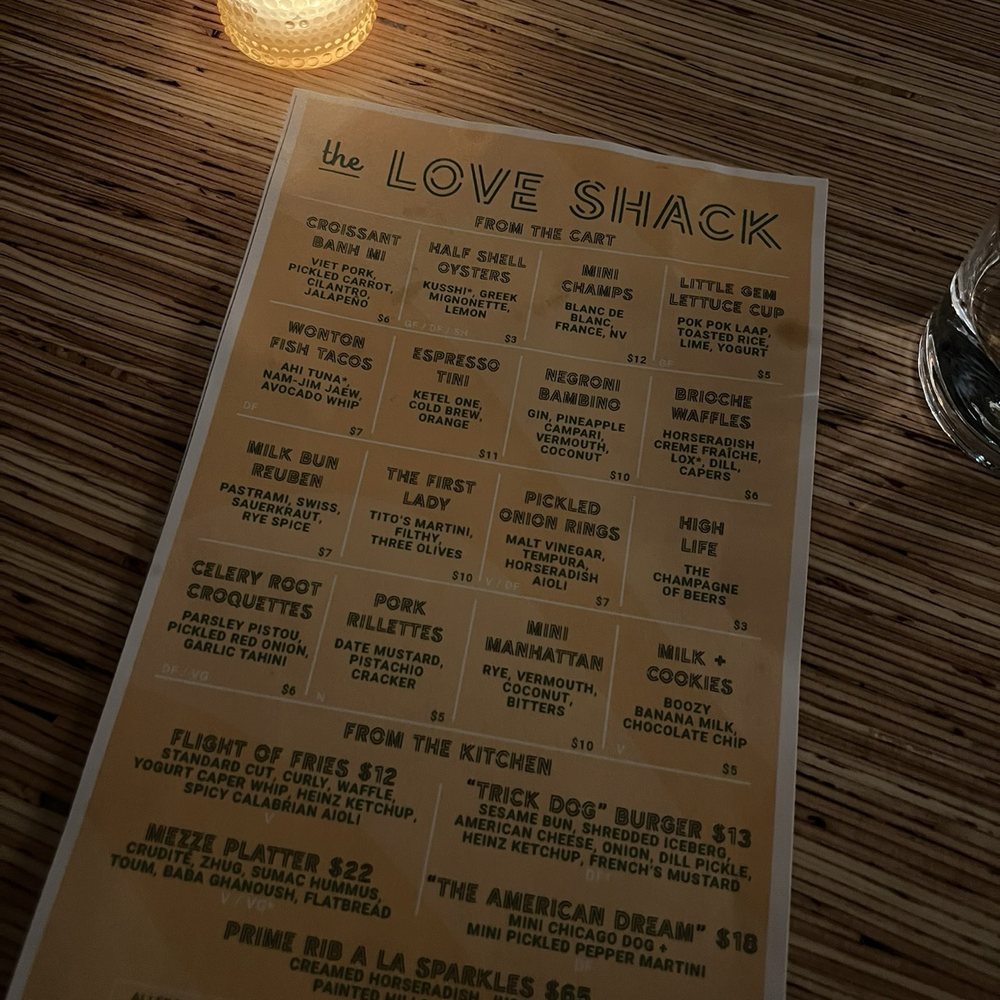 the LOVE SHACK
FROM THE CART
CROISSANT
BANH MI
VIET PORK,
PICKLED CARROT,
CILANTRO,
JALAPEÑO
$6
HALF SHELL
OYSTERS
KUSSHI*, GREEK
MIGNONETTE,
LEMON
GF / DF / SH
$3
MINI
CHAMPS
BLANC DE
BLANC,
FRANCE, NV
$12
LITTLE GEM
LETTUCE CUP
POK POK LAAP,
TOASTED RICE,
LIME, YOGURT
GF
$5
WONTON
FISH TACOS
AHI TUNA*,
NAM-JIM JAEW,
AVOCADO WHIP
DF
$7
ESPRESSO
TINI
KETEL ONE,
COLD BREW,
ORANGE
$11
NEGRONI
BAMBINO
GIN, PINEAPPLE
CAMPARI,
VERMOUTH,
COCONUT
$10
BRIOCHE
WAFFLES
HORSERADISH
CREME FRAÎCHE,
LOX*, DILL,
CAPERS
$6
MILK BUN
REUBEN
PASTRAMI, SWISS,
SAUERKRAUT,
RYE SPICE
$7
THE FIRST
LADY
TITO'S MARTINI,
FILTHY,
THREE OLIVES
$10
PICKLED
ONION RINGS
MALT VINEGAR,
TEMPURA,
HORSERADISH
AIOLI
V / DF
$7
HIGH
LIFE
THE
CHAMPAGNE
OF BEERS
$3
CELERY ROOT
CROQUETTES
PARSLEY PISTOU,
PICKLED RED ONION,
GARLIC TAHINI
DF / VG
$6
PORK
RILLETTES
DATE MUSTARD,
PISTACHIO
CRACKER
N
$5
MINI
MANHATTAN
RYE, VERMOUTH,
COCONUT,
BITTERS
$10
MILK +
COOKIES
BOOZY
BANANA MILK,
CHOCOLATE CHIP
V
$5
FROM THE KITCHEN
FLIGHT OF FRIES $12
STANDARD CUT, CURLY, WAFFLE,
YOGURT CAPER WHIP, HEINZ KETCHUP,
SPICY CALABRIAN AIOLI
V
"TRICK DOG" BURGER $13
SESAME BUN, SHREDDED ICEBERG,
AMERICAN CHEESE, ONION, DILL PICKLE,
HEINZ KETCHUP, FRENCH'S MUSTARD
MEZZE PLATTER $22
CRUDITÉ, ZHUG, SUMAC HUMMUS,
TOUM, BABA GHANOUSH, FLATBREAD
V / VG*
"THE AMERICAN DREAM" $18
MINI CHICAGO DOG +
MINI PICKLED PEPPER MARTINI
DF
PRIME RIB A LA SPARKLES $65
CREAMED HORSERADISH,
PAINTED